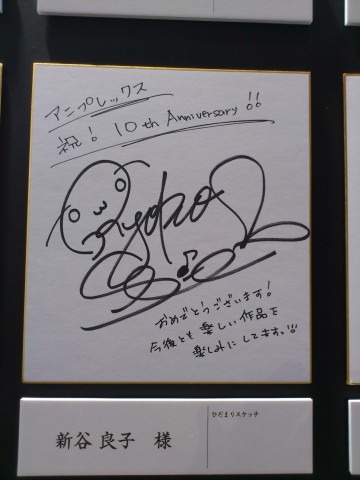 アニプレックス
祝! 10th Anniversary!!
Ryoko
おめでとうございます!
今後とも楽しい作品を
楽しみにしてます。!!!
新谷 良子 様
ひだまりスケッチ